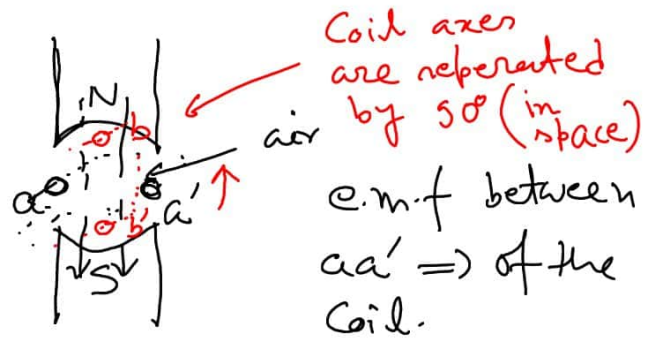 Coil axes
are reperated
by 90° (in space)
N
b
air
a
a'
b'
S
e.m.f between
aa' => of the
Coil.